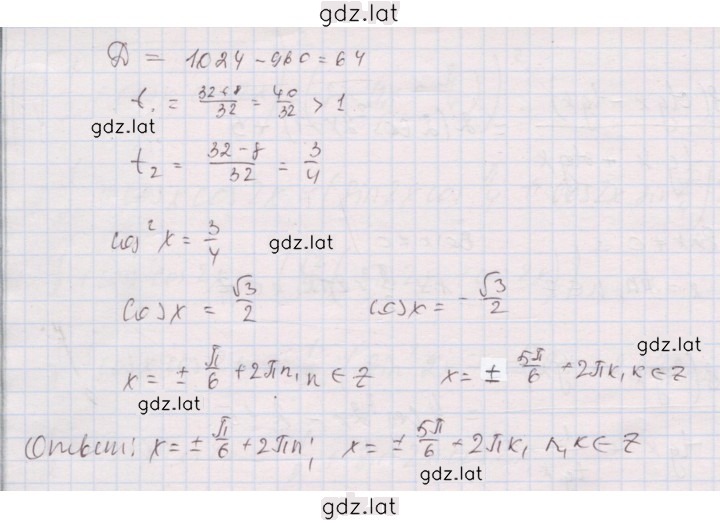 gdz.lat
D = 1024 - 960 = 64
t₁ = (32+8)/32 = 40/32 > 1
gdz.lat
t₂ = (32-8)/32 = 3/4
cos² x = 3/4
gdz.lat
cos x = √3/2 cos x = -√3/2
gdz.lat
x = ± π/6 + 2πn, n ∈ Z x = ± 5π/6 + 2πk, k ∈ Z
gdz.lat
Ответ: x = ± π/6 + 2πn; x = ± 5π/6 + 2πk, n, k ∈ Z
gdz.lat
gdz.lat